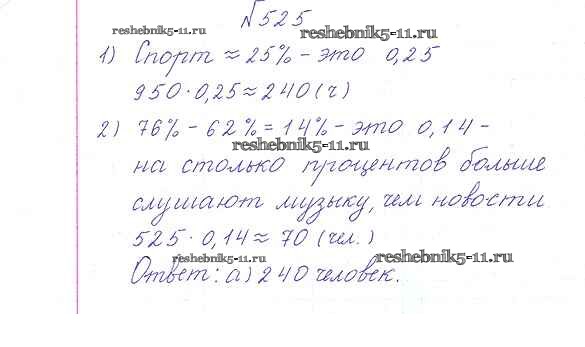 №525
reshebnik5-11.ru reshebnik5-11.ru
1) Спорт ≈ 25% - это 0,25
950·0,25≈240(ч)
2) 76% - 62% = 14% - это 0,14 -
reshebnik5-11.ru
на столько процентов больше
слушают музыку, чем новости
525·0,14≈70 (чел.)
reshebnik5-11.ru reshebnik5-11.ru
Ответ: а) 240 человек.